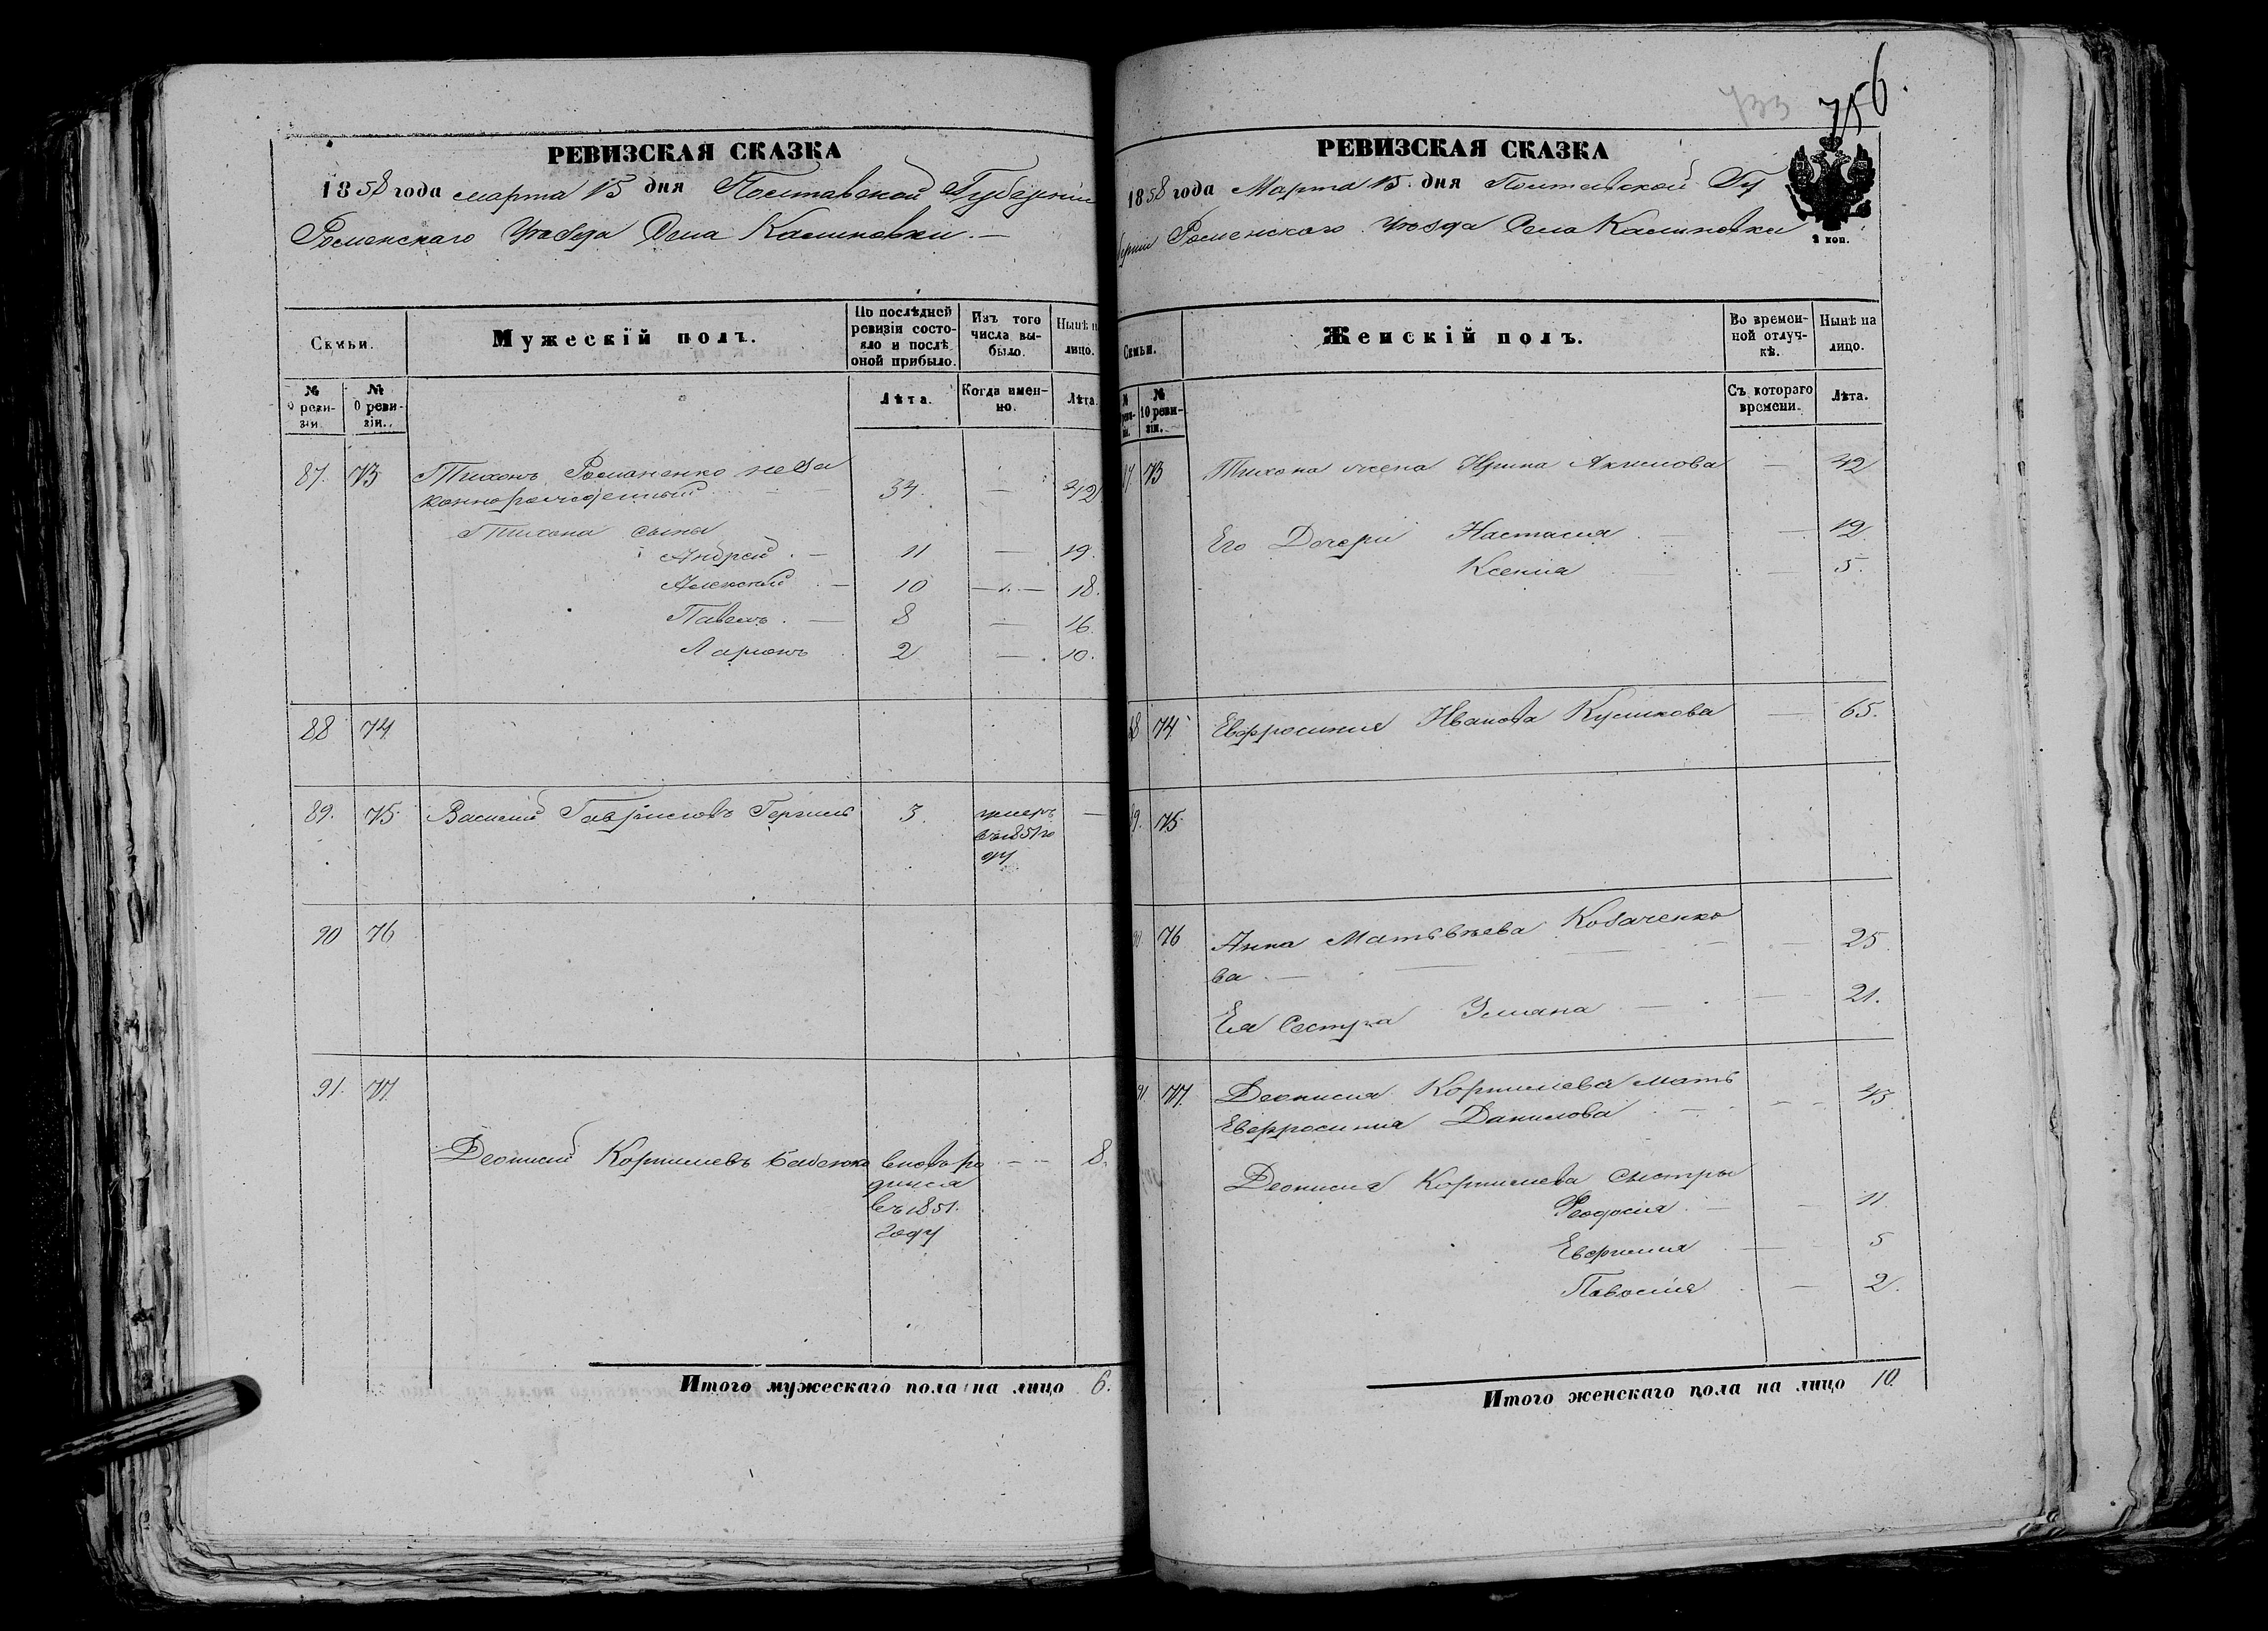 733
756.
РЕВИЗСКАЯ СКАЗКА
1858 года марта 15 дня Полтавской Губерніи
Роменскаго Уѣзда Села Калиновки. —
Семьи.
Мужескій полъ.
По послѣдней ревизіи состояло и послѣ оной прибыло.
Изъ того числа выбыло.
Нынѣ на лицо.
№ 9 ревизіи.
№ 10 ревизіи.
Лѣта.
Когда именно.
Лѣта.
87. 73 Тихонъ Романенко неза
коннорожденный 34. — 42
Тихона сыны
Андрей. — 11 — 19.
Алексѣй. — 10 — 18.
Павелъ. — 8 — 16.
Ларионъ 2 — 10.
88 74
89. 75 Василий Гавриловъ 3. умеръ —
въ 1851 го
ду
90 76
91. 77.
Деонисий Корнилиевъ вновь ро — 8.
дился
въ 1851.
году
Итого мужескаго пола на лицо 6.
РЕВИЗСКАЯ СКАЗКА
1858 года Марта 15. дня Полтавской Гу
берніи Роменскаго Уѣзда Села Калиновки
2 коп.
Семьи.
Женскій полъ.
Во временной отлучкѣ.
Нынѣ на лицо.
№ 10 ревизіи.
Съ котораго времени.
Лѣта.
87. 73 Тихона жена Ирина Акимова — 42
Его Дочери Настасия — 12.
Ксения — 5.
88 74 Евфросиния Иванова Куликова — 65.
89. 75
90 76 Анна Матвѣева
ва — 25
Ея Сестра Улиана — 21.
91. 77. Деонисия Корнилиева мать
Евфросиния Данилова — 43
Деонисия Корнилиева Сестры
Феодосия — 11.
Евфимия — 5
2.
Итого женскаго пола на лицо 10.